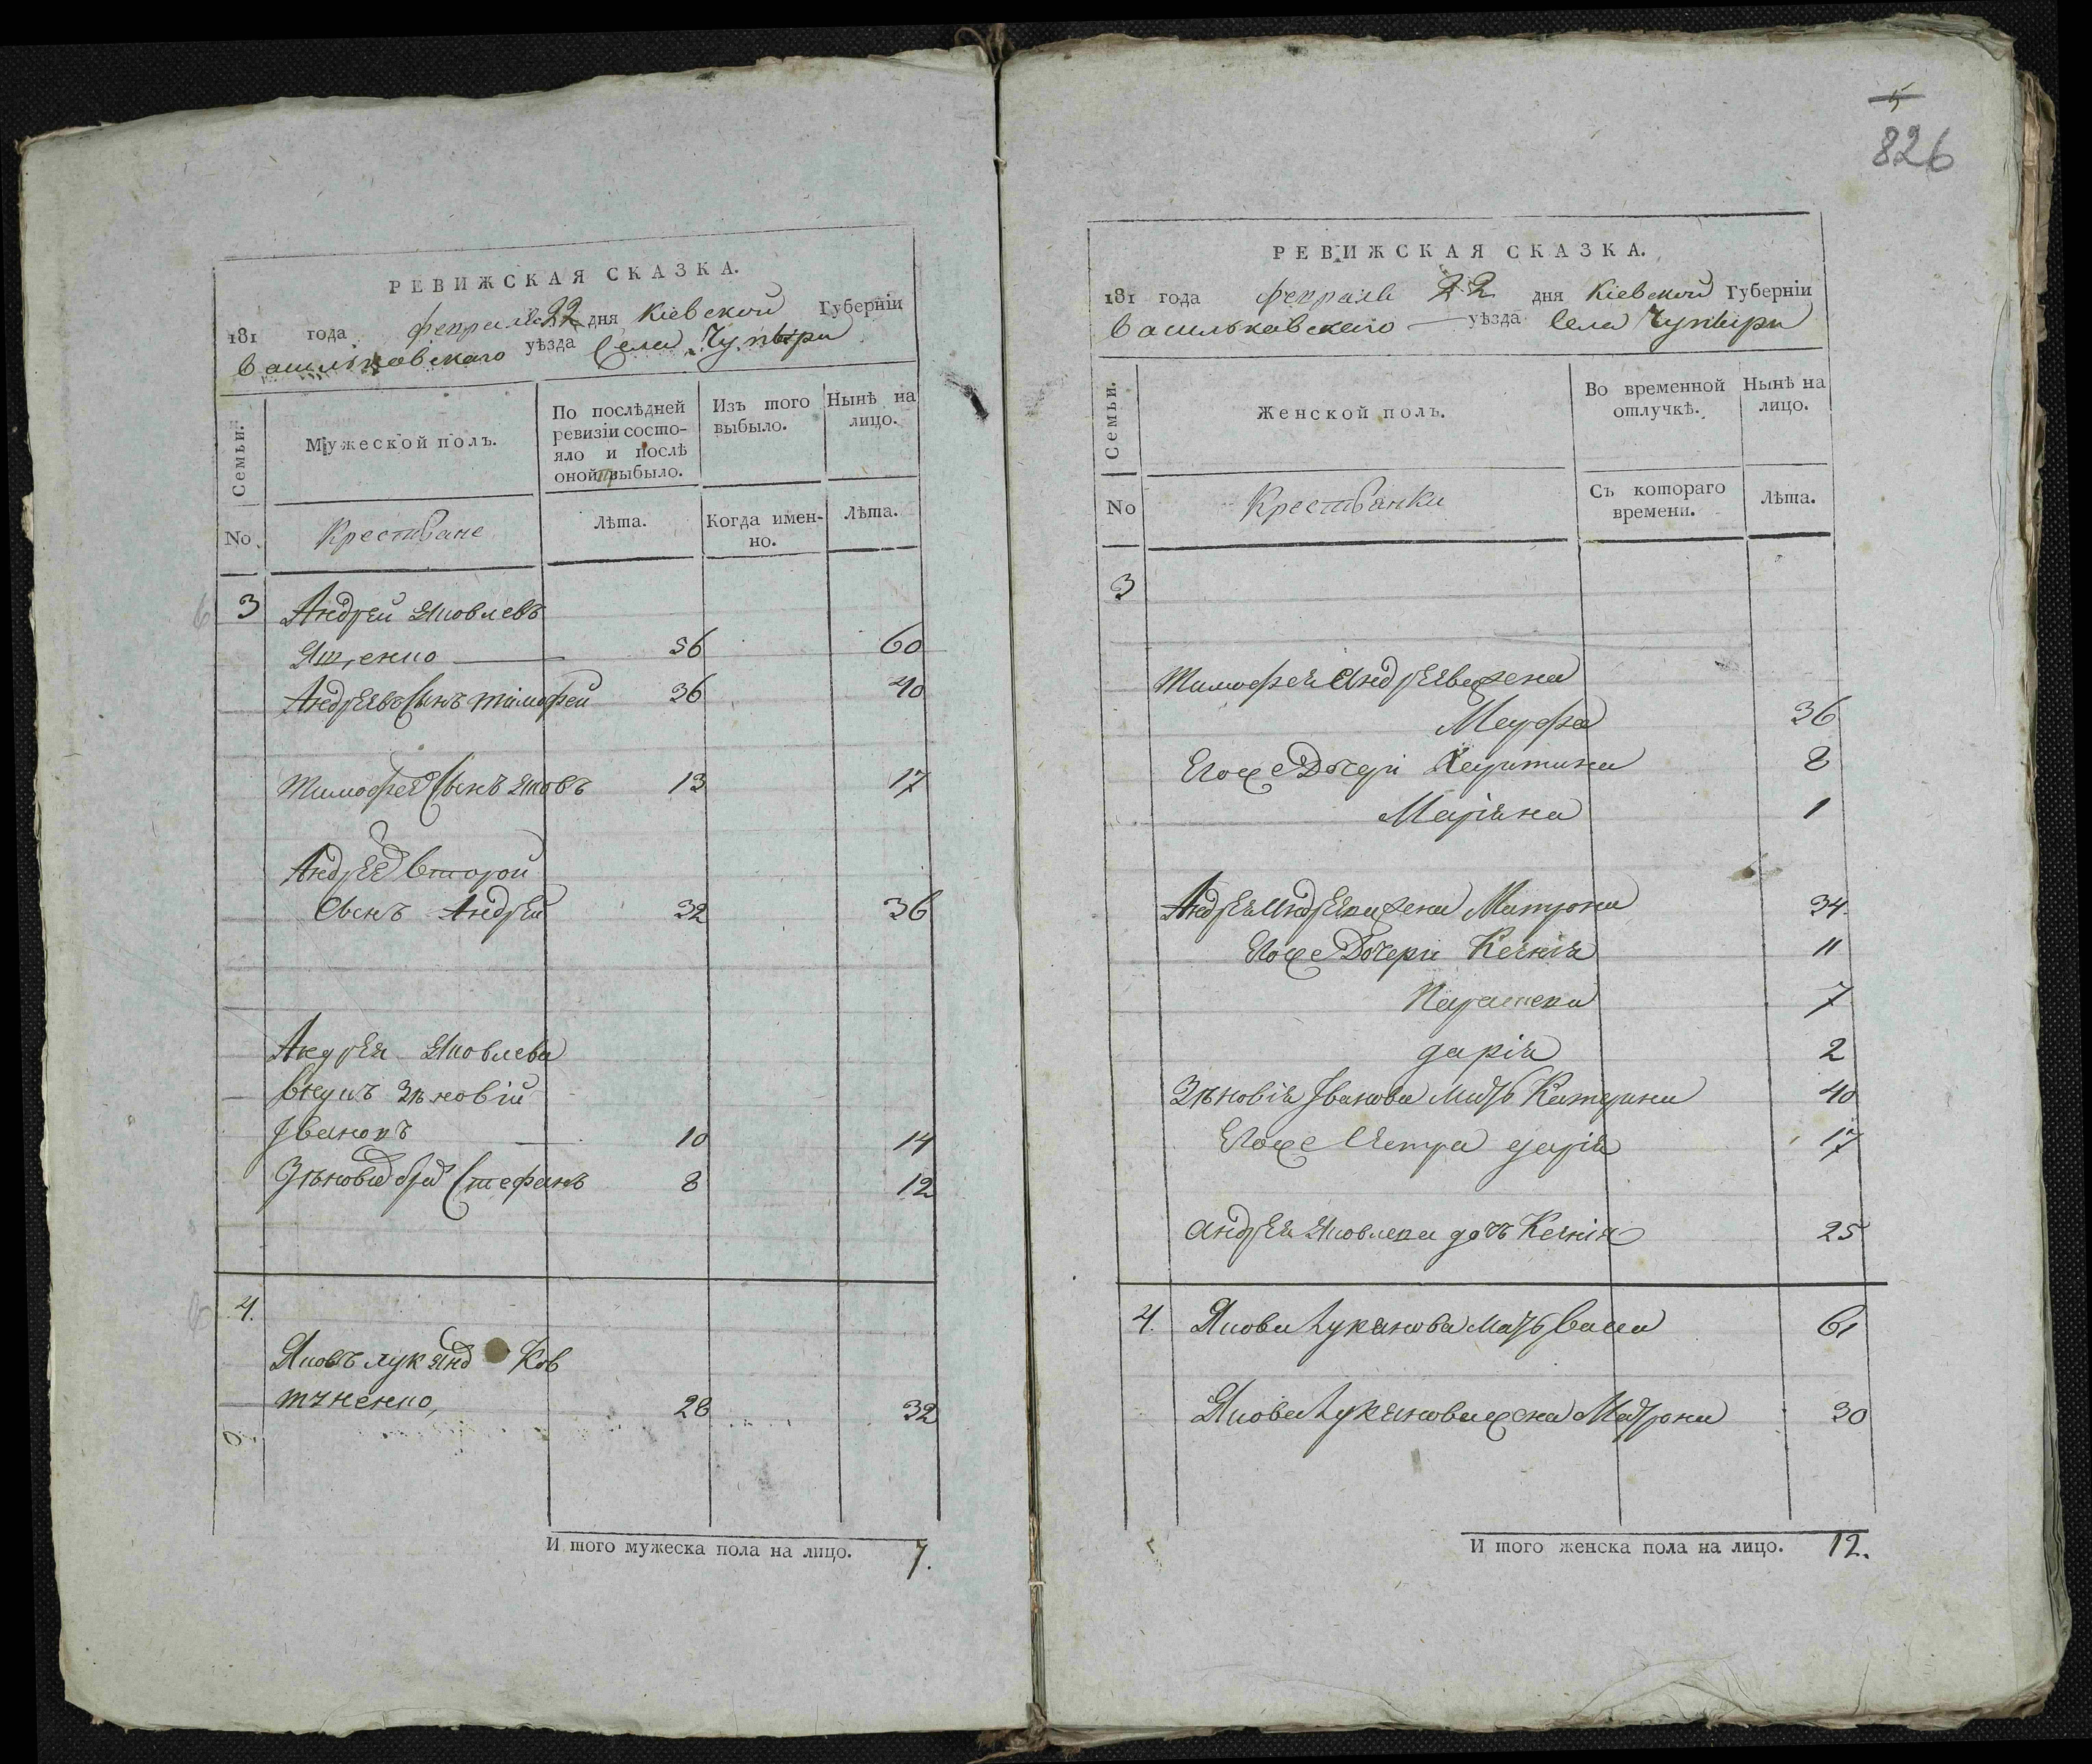 РЕВИЖСКАЯ СКАЗКА.
181 года февраля 22 дня Кіевской Губерніи
Васильковскаго уѣзда Села Чупыри
Семьи.
Мужеской полъ.
По послѣдней ревизіи состо-
яло и послѣ
оной выбыло.
Изъ того
выбыло.
Нынѣ на
лицо.
No
Крестьяне
Лѣта.
Когда имен-
но.
Лѣта.
3 Андрей Яковлевъ
Ященко 56 60
Андреевъ Сынъ тимофей 36 40
Тимофея Сынъ Яковъ 13 17
Андрея Второй
Сынъ Андрей 32 36
Андрея Яковлева
внукъ Зѣновій
Івановъ 10 14
Зѣновія бра Стефанъ 8 12
4.
Яковъ лукянд Ков
тненко, 28 32
И того мужеска пола на лицо. 7.
5
826
РЕВИЖСКАЯ СКАЗКА.
181 года февраля 22 дня Кіевской Губерніи
Васильковскаго уѣзда Села Чупыри
Семьи.
Женской полъ.
Во временной
отлучкѣ.
Нынѣ на
лицо.
No
Крестьянки
Съ котораго
времени.
Лѣта.
3
Тимофея Андреева жена
Марфа 36
Егоже Дочери Харитина 8
Маріяна 1
Андрея Андреева жена Матрона 34
Егоже Дочери Ксенія 11
Параскева 7
дарія 2
Зѣновія Іванова Мать Катерина 40
Егоже Сестра дарія 17
андрея Яковлева дочь Ксенія 25
4. Якова Лукянова мать Васса 61
Якова Лукянова жена Матрона 30
И того женска пола на лицо. 12.